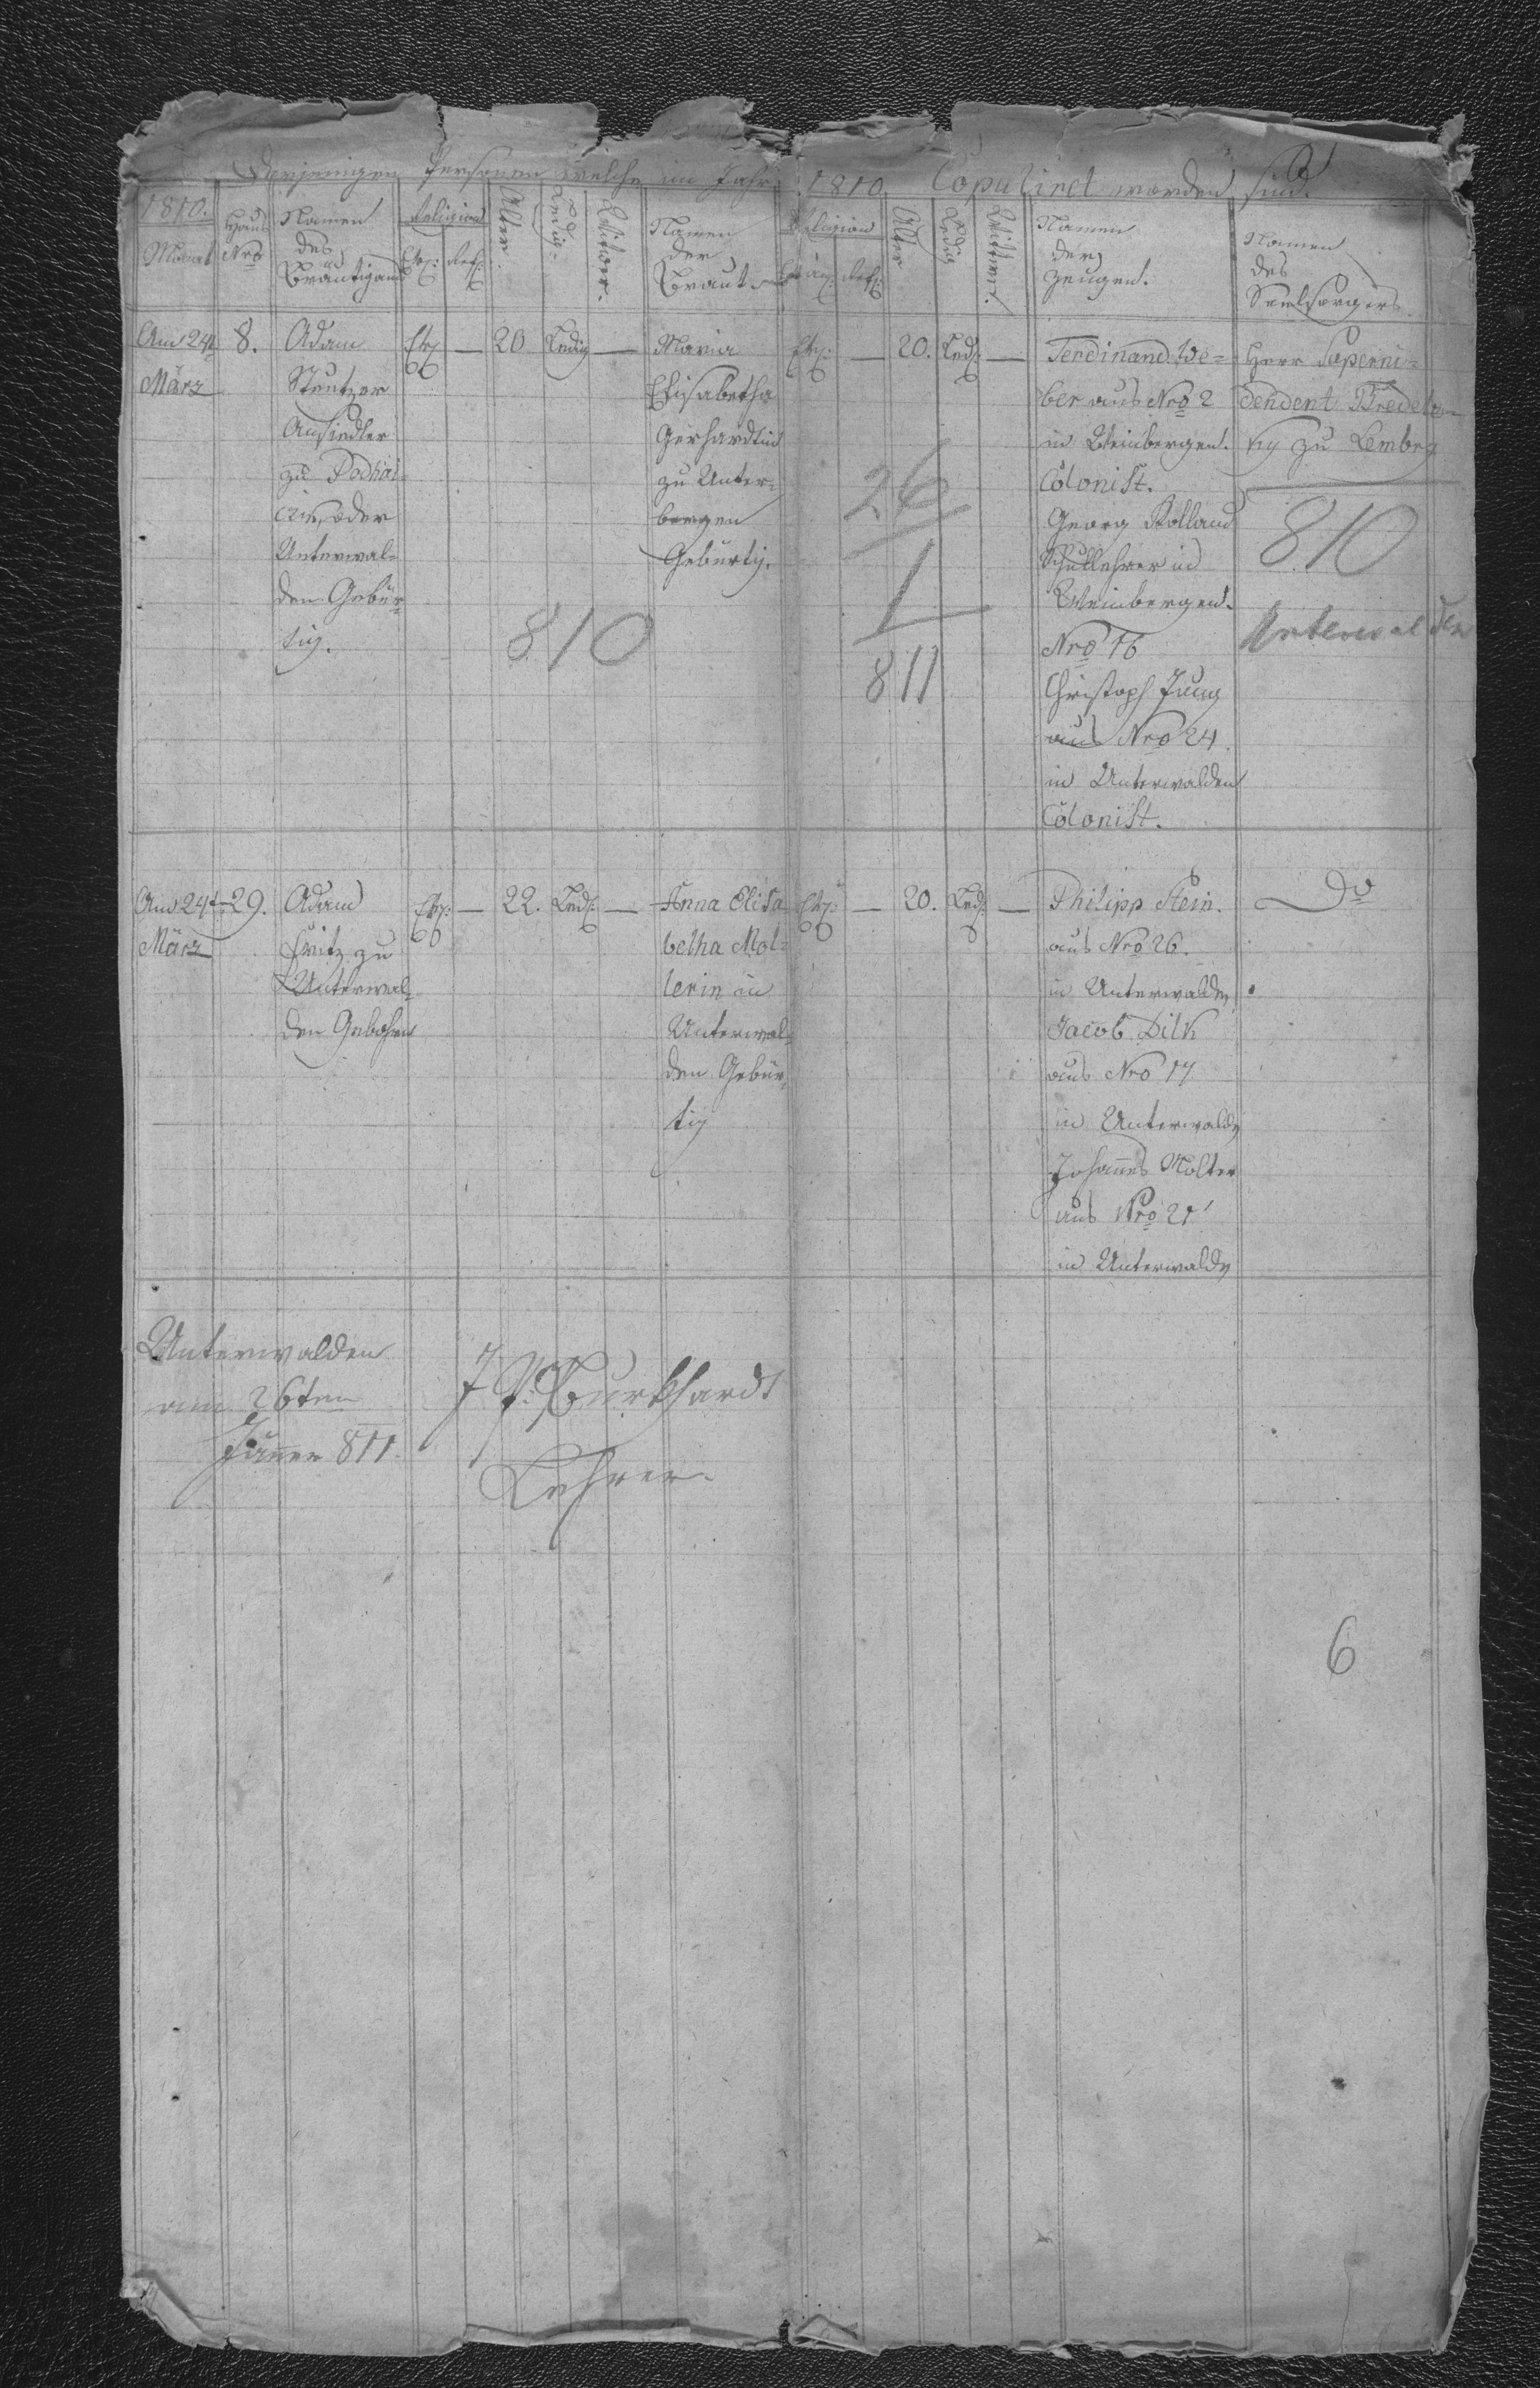 Derjenigen Personen welche im Jahr 1810. Copuliret worden sind.
1810. Monat
Haus Nro
Namen des Bräutigams
Religion
Ev: Ref:
Alter.
Ledig.
Witwer.
Namen der Braut
Religion
Ev: Ref:
Alter
Ledig
Wittwer.
Namen der Zeugen.
Namen des Seelsorgers
Am 24t März
8.
Adam
Steutzer
Ansiedler
zu Podhai=
czie, oder
Unterwal=
den Gebür=
tig.
Ev: —
20
Ledig —
Maria
Elisabetha
Gerhardtin
zu Unter=
bergen
Gebürtig.
Ev: —
20.
Led: —
Ferdinand We=
ber aus Nro 2
in Weinbergen.
Colonist.
Georg Rolland
Schullehrer in
Weinbergen.
Nro 16
Christoph Jung
aus Nro 24.
in Unterwalden
Colonist.
Herr Superni=
dendent Bredetz=
ky zu Lembrg
810
Unterwalden
810
26
1
811
Am 24t März
29.
Adam
Fritz zu
Unterwal=
den Gebohren
Ev: —
22.
Led: —
Anna Elisa
betha Mol=
terin in
Unterwal=
den Gebür=
tig
Ev: —
20.
Led: —
Philipp Stein.
aus Nro 26.
in Unterwalden
Jacob Dilk
aus Nro 17
in Unterwalden
Johannes Molter
aus Nro 21
in Unterwalden
Do
Unterwalden
am 26ten
Jänner 811.
J. P. Burkhardt
Lehrer.
6